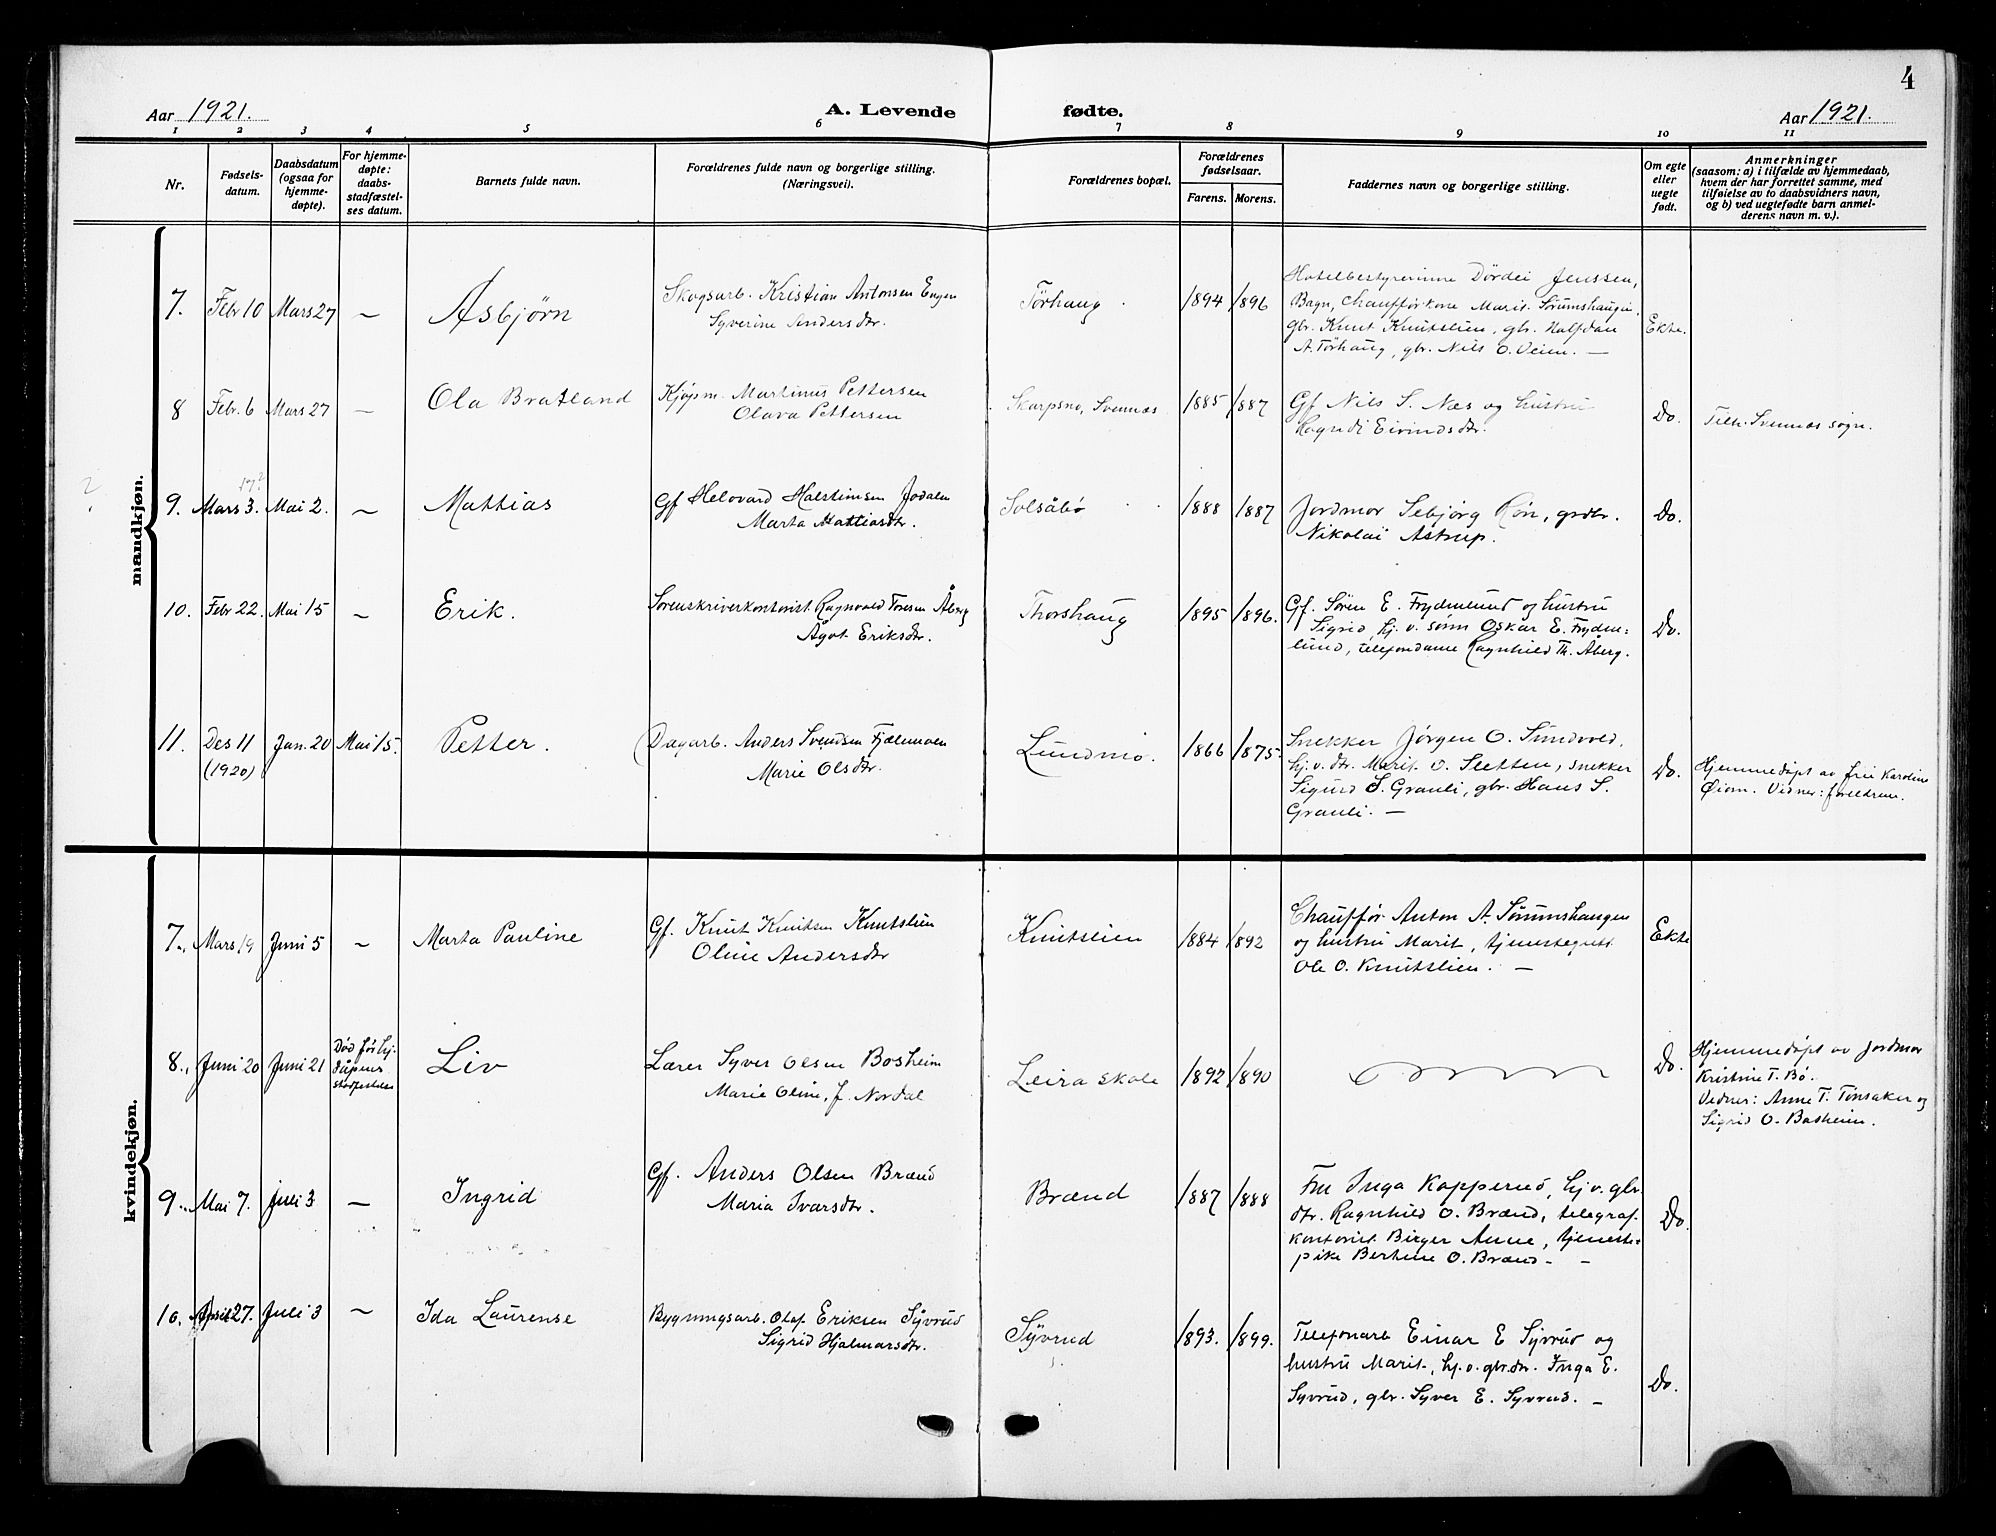 4
Aar 1921. A. Levende fødte. Aar 1921.
1 2 3 4 5 6 7 8 9 10 11
Nr.
Fødsels-
datum.
Daabsdatum
(ogsaa for
hjemme-
døpte).
For hjemme-
døpte:
daabs-
stadfæstel-
ses datum.
Barnets fulde navn.
Forældrenes fulde navn og borgerlige stilling.
(Næringsvei).
Forældrenes bopæl.
Forældrenes
fødselsaar.
Farens. Morens.
Faddernes navn og borgerlige stilling.
Om egte
eller
uegte
født.
Anmerkninger
(saasom: a) i tilfælde av hjemmedaab,
hvem der har forrettet samme, med
tilføielse av to daabsvidners navn,
og b) ved uegtefødte barn anmel-
derens navn m. v.).
mandkjøn.
7. Febr 10 Mars 27 — Asbjørn
Skogsarb. Kristian Antonsen Engen
Syverine Andersdtr.
Tørhaug 1894 1896
Hotelbestyrerinne Dørdei Jenssen,
Bagn, chaufførkone Marit Sørumshaugen,
gbr. Knut Knutslien, gbr. Halfdan
A. Tørhaug, gbr. Nils O. Veien. —
Ekte.
8 Febr. 6 Mars 27 — Ola Bratland
Kjøpm. Martinus Pettersen
Olava Pettersen
Skarpsno, Svennes 1885 1887
Gf Nils S. Næs og hustru
Ragndi Eivindsdtr.
Do.
Tilh. Svennes sogn.
17?
9. Mars 3. Mai 2. — Mattias
Gf Helovard Halstensen Jodalen
Marta Mattiasdtr.
Solsåbø 1888 1887
Jordmor Sebjørg Røn, grdbr.
Nikolai Astrup.
Do.
10. Febr 22. Mai 15 — Erik.
Sorenskriverkontorist Ragnvald Toresen Åberg
Ågot Eriksdtr.
Thorshaug 1895 1896.
Gf. Søren E. Frydenlund og hustru
Sigrid, hj. v. sønn Oskar E. Fryden-
lund, telefondame Ragnhild Th. Åberg.
Do.
11. Des 11 Jan. 20 Mai 15. Petter.
(1920)
Dagarb. Anders Svendsen Fjelmoen
Marie Olsdtr.
Lundmo. 1866 1875.
Snekker Jørgen O. Sundvold,
hj. v. dtr. Marit O. Sletten, snekker
Sigurd S. Granli, gbr. Hans S.
Granli. —
Do.
Hjemmedøpt av fru Karoline
Øiom. Vidner: foreldrene.
kvindekjøn.
7. Mars 19 Juni 5 — Marta Pauline
Gf. Knut Knutsen Knutslien
Oline Andersdtr
Knutslien 1884 1892
Chauffør Anton A. Sørumshaugen
og hustru Marit, tjenestegutt
Ole O. Knutslien. —
Ekte
8. Juni 20 Juni 21
Død før hj.
dåpens
stadfestelse
Liv
Lærer Syver Olsen Bosheim
Marie Oline, f. Nordal
Leira skole 1892 1890
Do.
Hjemmedøpt av Jordmor
Kristine T. Bø.
Vidner: Anne T. Tønsaker og
Sigrid O. Bosheim.
9. Mai 7. Juli 3 — Ingrid
Gf. Anders Olsen Brænd
Maria Ivarsdtr.
Brænd 1887 1888
Fru Inga Kopperud, hj. v. gbr.
dtr. Ragnhild O. Brænd, telegraf-
kontorist Birger Aune, tjeneste-
pike Berthine O. Brænd. —
Do.
10. April 27. Juli 3 — Ida Laurense
Bygningsarb. Olaf Eriksen Syvrud
Sigrid Hjalmarsdtr.
Syvrud 1893. 1899.
Telefonarb Einar E Syvrud og
hustru Marit, hj. v. gbr.dtr. Inga E.
Syvrud, gbr. Syver E. Syvrud. —
Do.